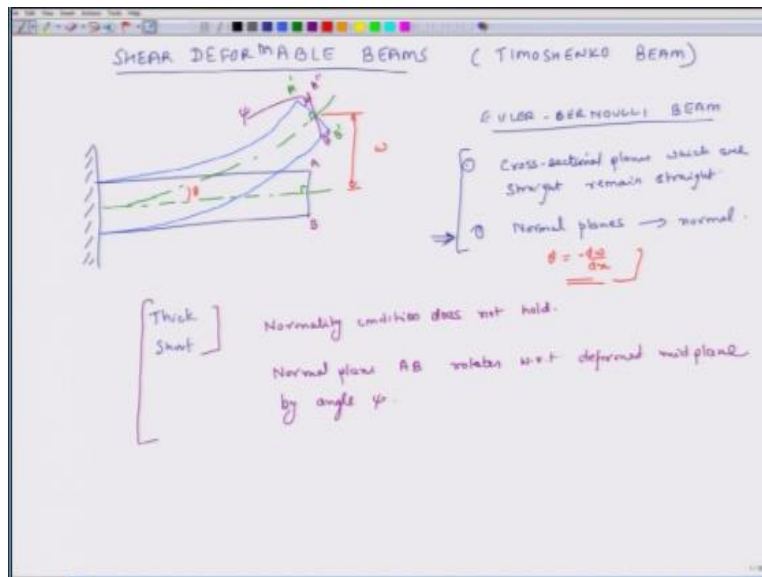 SHEAR DEFORMABLE BEAMS ( TIMOSHENKO BEAM )
EULER-BERNOULLI BEAM
Cross-sectional planes which are
straight remain straight.
Normal planes → normal.
θ = -dω/dx
ψ
A' A''
B' B''
ω
θ
A
B
Thick
Short
Normality condition does not hold.
Normal plane AB rotates w.r.t deformed midplane
by angle ψ.